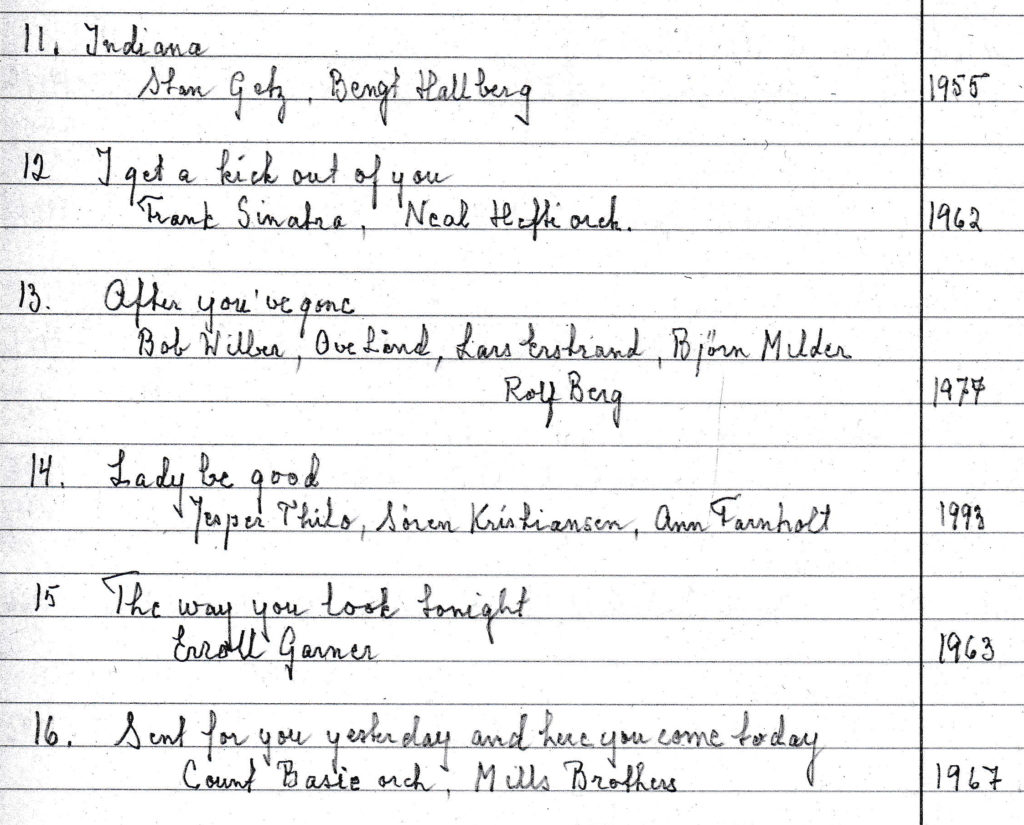 11. Indiana
Stan Getz, Bengt Hallberg 1955
12 I get a kick out of you
Frank Sinatra, Neal Hefti orch. 1962
13. After you've gone
Bob Wilber, Ove Lind, Lars Erstrand, Björn Milder
Rolf Berg 1977
14. Lady be good
Jesper Thilo, Sören Kristiansen, Ann Farnholt 1993
15 The way you look tonight
Erroll Garner 1963
16. Sent for you yesterday and here you come today
Count Basie orch, Mills Brothers 1967